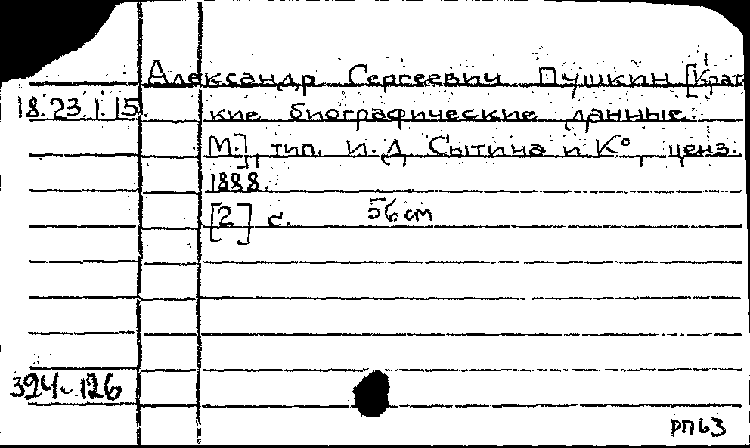 Александр Сергеевич Пушкин [Крат
18.23.1.15. кие биографические данные.
М.], тип. И.Д. Сытина и К°, ценз.
1888.
[2] с. 56 см
324-126
РП63